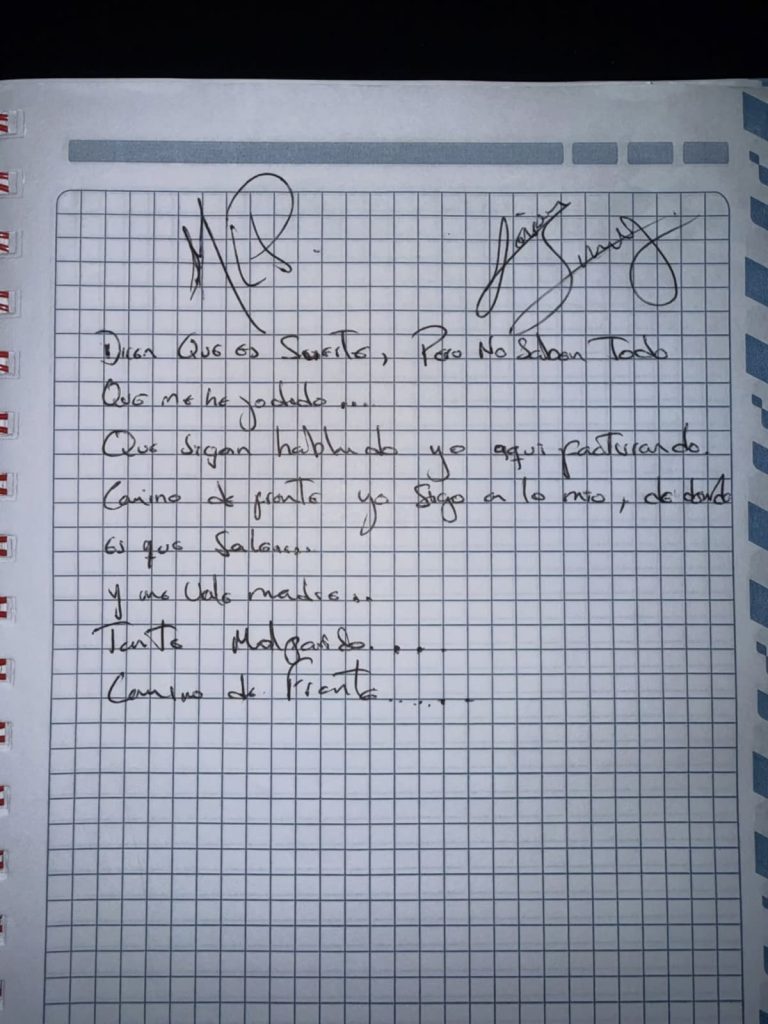 Dicen Que es Suerte, Pero No Saben Todo
Que me he jodido....
Que sigan hablando yo aqui facturando.
Camino de frente yo sigo a lo mio, de donde
es que Salen...
y me Vale madre...
Tante Malgarido....
Camino de Frente.......